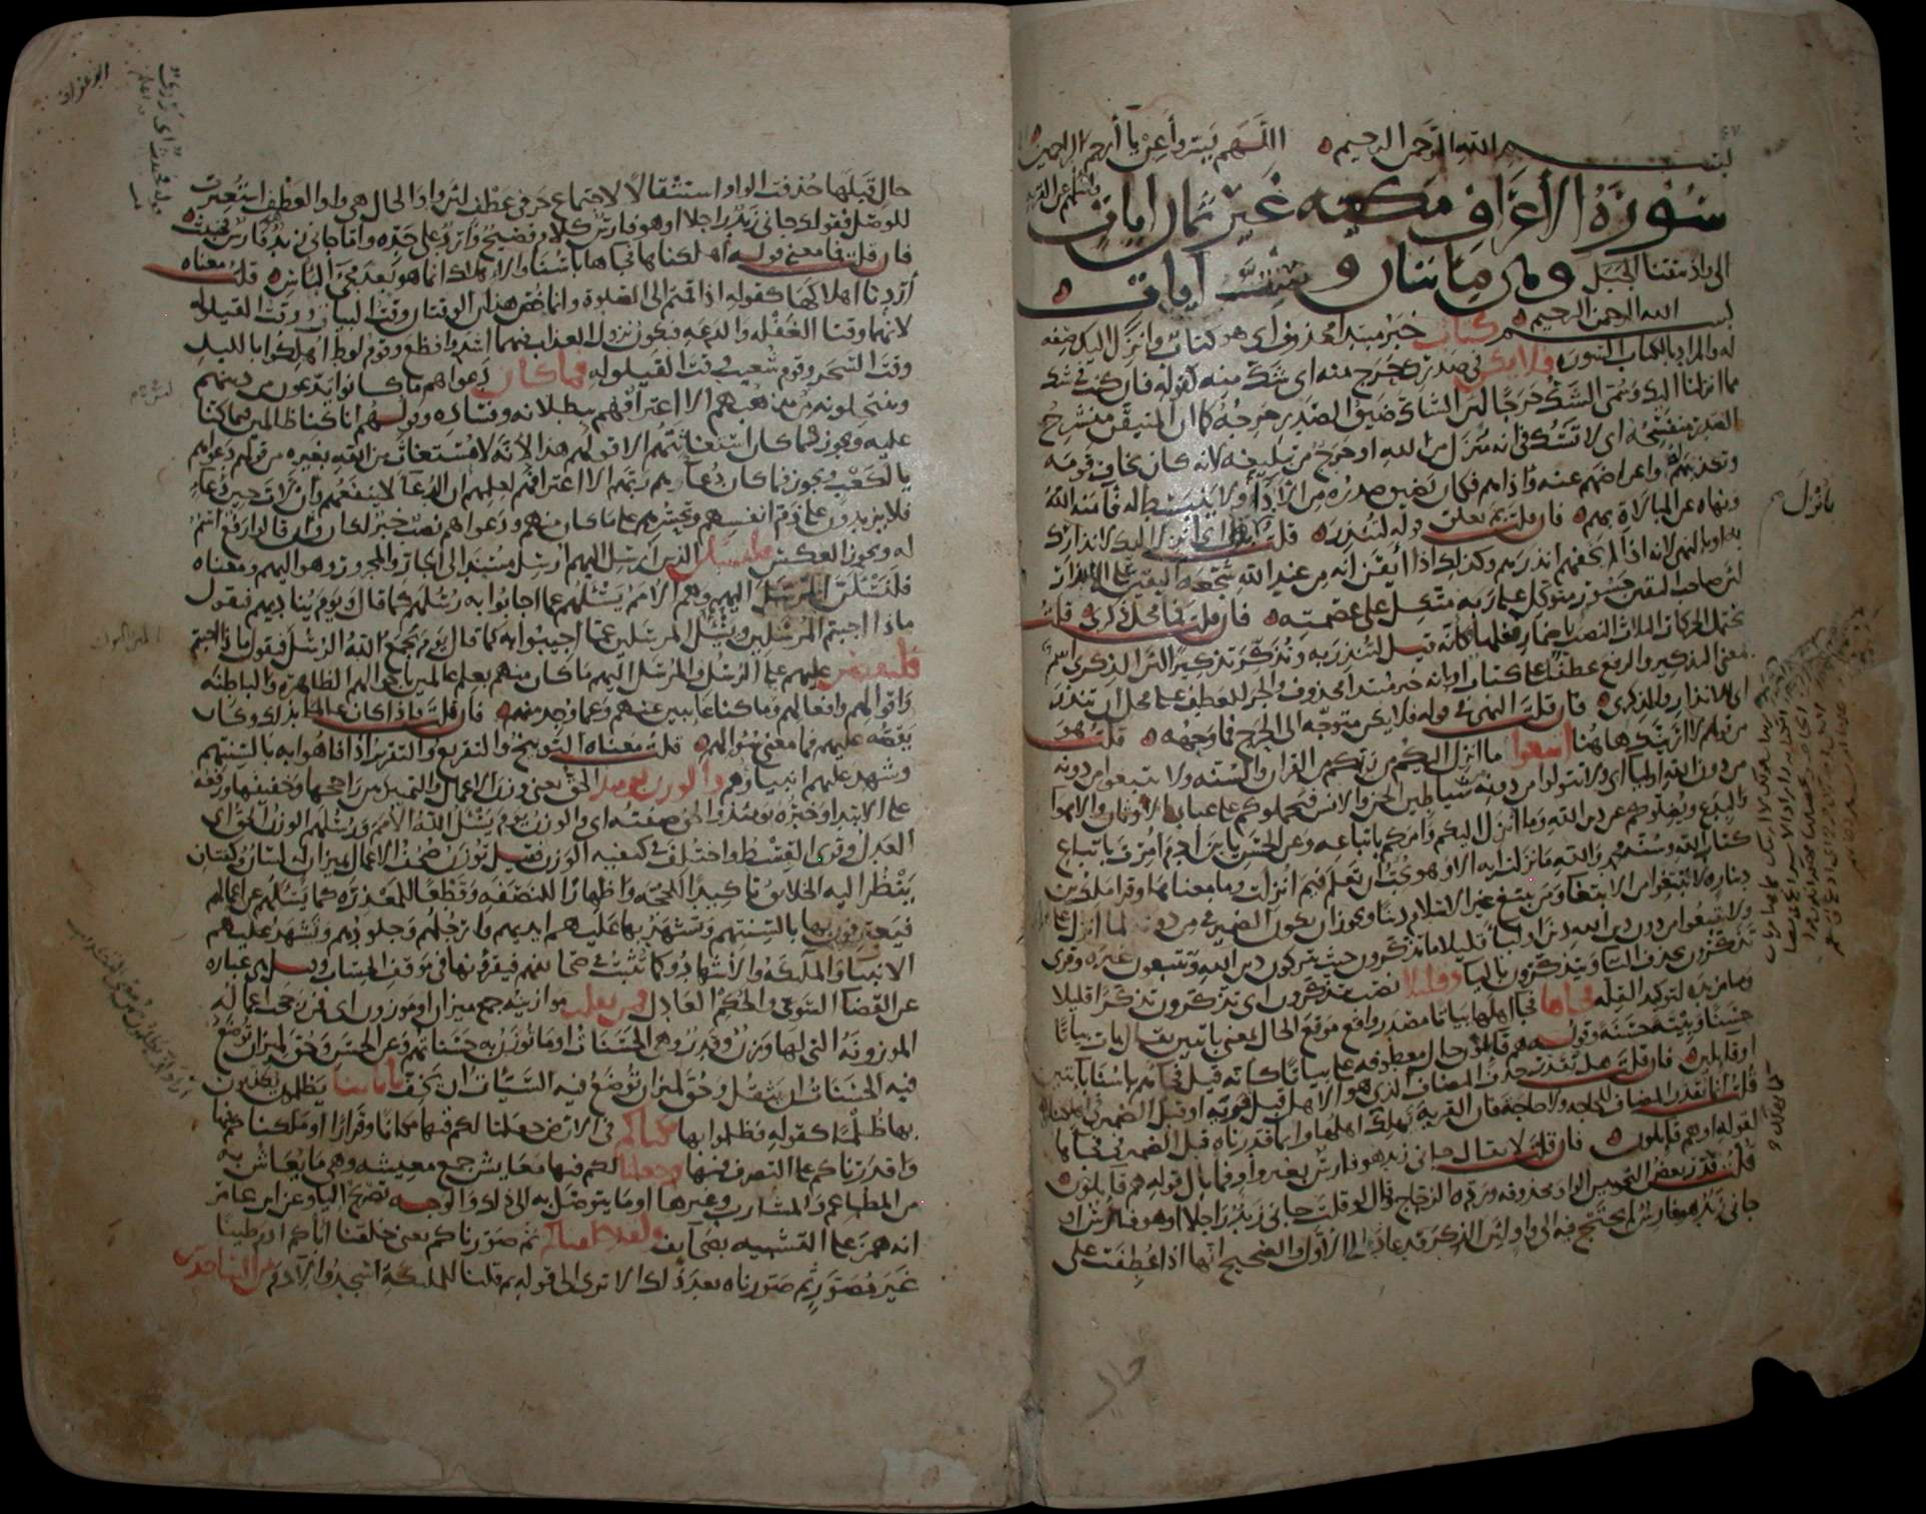 بسم الله الرحمن الرحيم اللهم يسر وأعن يا أرحم الراحمين
سورة الأعراف مكية غير ثمان ايات
الى واذ نتقنا الجبل وهى مائتان وست آيات
بسم الله الرحمن الرحيم كتاب خبر مبتدا محذوف اى هو كتاب وانزل اليك صفة
له والمراد بالكتاب السورة فلا يكن فى صدرك حرج منه اى شك منه كقوله فان كنت فى شك
مما انزلنا اليك وسمى الشك حرجا لان الشاك ضيق الصدر حرجه كما ان المتيقن منشرح
الصدر منفسحه اى لا تشك فى انه منزل من الله او حرج من تبليغه لانه كان يخاف قومه
وتكذيبهم له واعراضهم عنه واذاهم فكان يضيق صدره من الأداء ولا ينبسط له فامنه الله
ونهاه عن المبالاة بهم فان قلت بم تعلق قوله لتنذر قلت بانزل اى انزل اليك لانذارك
به او بالنهى لانه اذا لم يخفهم انذرهم وكذلك اذا أيقن انه من عند الله شجعه اليقين على الانذار
لان صاحب اليقين جسور متوكل على ربه متكل على عصمته فان قلت فما محل ذكرى قلت
يحتمل الحركات الثلاث النصب باضمار فعلها كانه قيل لتنذر به وتذكر تذكيرا لان الذكرى اسم
بمعنى التذكير والرفع عطفا على كتاب او بانه خبر مبتدا محذوف والجر للعطف على محل ان تنذر
اى للانذار وللذكرى فان قلت النهى فى قوله فلا يكن متوجه الى الحرج فما وجهه قلت هو
من قولهم لا ارينك ها هنا اتبعوا ما انزل اليكم من ربكم من القران والسنة ولا تتبعوا من دونه
من دون الله اوليا اى ولا تتولوا من دونه من شياطين الجن والانس فيحملوكم على عبادة الاوثان والاهوا
والبدع ويضلوكم عن دين الله وما انزل اليكم وامركم باتباعه وعن الحسن يا بن أدم امرت باتباع
كتاب الله وسنة محمد والله ما نزلت اية الا وهو يحب ان تعلم فيم انزلت وما معناها وقرا ملك بن
دينار ولا تبتغوا من الابتغا ومن يبتغ غير الاسلام دينا ويجوز ان يكون الضمير فى من دونه لما انزل على
ولا تتبعوا من دون دين الله دين اوليا قليلا ما تذكرون حيث تتركون دين الله وتتبعون غيره وقرى
تذكرون بحذف التا ويتذكرون باليا وقليلا نصب بتذكرون اى تذكرون تذكرا قليلا
وما مزيده لتوكيد القلة فجاها فجا اهلها بياتا مصدر واقع موقع الحال بمعنى بائتين يقال بات بياتا
حسنا وبيتة حسنة وقوله هم قائلون حال معطوفة على بياتا كانه قيل فجاهم باسنا بائتين
او قائلين فان قلت هل يقدر حذف المضاف الذى هو الاهل قبل قرية او قبل الضمير فى اهلكناها
قلت انما يقدر المضاف للحاجة ولا حاجة فان القرية تهلك كما يهلك اهلها وانما قدرناه قبل الضمير فى فجاها
لقوله او هم قائلون فان قلت لا يقال جانى زيد هو فارس بغير واو فما بال قوله هم قائلون
قلت قدر بعض النحويين الواو محذوفة ورده الزجاج وقال لو قلت جانى زيد راجلا او هو فارس او
جانى زيد هو فارس لم يحتج فيه الى واو لان الذكر قد عاد الى الاول والصحيح انها اذا عطفت على
حال
حال قبلها حذفت الواو استثقالا لاجتماع حرفى عطف لان واو الحال هى واو العطف استعيرت
للوصل فقولك جانى زيد راجلا او هو فارس كلام فصيح وارد على حده واما جانى زيد هو فارس فخبيث
فان قلت فما معنى قوله أهلكناها فجاها باسنا والاهلاك انما هو بعد مجى الباس قلت معناه
أردنا اهلاكها كقوله اذا قمتم الى الصلوة وانما خص هذان الوقتان وقت البيات ووقت القيلولة
لانهما وقتا الغفلة والدعه فيكون نزول العذاب فيهما اشد وافظع وقوم لوط اهلكوا بالليل
وقت السحر وقوم شعيب وقت القيلولة فما كان دعواهم ما كانوا يدعون من دينهم
وينتحلونه من مذهبهم الا اعترافهم ببطلانه وفساده وقولهم انا كنا ظالمين فيما كنا
عليه ويجوز فما كان استغاثتهم الا قولهم هذا لانه لا مستغاث من الله بغيره من قولهم دعواهم
يا لكعب ويجوز فما كان دعاؤهم ربهم الا اعترافهم لعلمهم ان الدعا لا ينفعهم وأن لات حين دعاء
فلا يزيدون على ذم انفسهم وتحسرهم على ما كان منهم ودعواهم نصب خبر لكان وأن قالوا رفع اسم
له ويجوز العكس فلنسئلن الذين ارسل اليهم ارسل مسند الى الجار والمجرور وهو اليهم ومعناه
فلنسئلن المرسل اليهم وهم الامم يسئلهم عما اجابوا به رسلهم كما قال ويوم يناديهم فيقول
ماذا اجبتم المرسلين ويسئل المرسلين عما اجيبوا به كما قال يوم يجمع الله الرسل فيقول ماذا اجبتم
فلنقصن عليهم على الرسل والمرسل اليهم ما كان منهم بعلم عالمين باحوالهم الظاهرة والباطنه
واقوالهم وافعالهم وما كنا غايبين عنهم وعما وجد منهم فان قلت فاذا كان عالما بذلك وكان
يقصه عليهم فما معنى سؤالهم قلت معناه التوبيخ والتقريع والتقرير اذا فاهوا به بالسنتهم
وشهد عليهم انبياؤهم والوزن يومئذ الحق يعنى وزن الاعمال والتمييز بين راجحها وخفيفها ورفعه
على الابتدا وخبره يومئذ والحق صفته اى والوزن يوم يسئل الله الامم ورسلهم الوزن الحق اى
العدل وقرى القسط واختلف فى كيفية الوزن فقيل توزن صحف الاعمال بميزان له لسان وكفتان
ينظر اليه الخلائق تاكيدا للحجه واظهارا للنصفه وقطعا للمعذره كما يسئلهم عن اعمالهم
فيعترفون بها بالسنتهم وتشهد بها عليهم ايديهم وارجلهم وجلودهم وتشهد عليهم
الانبيا والملئكة والاشهاد وكما تثبت فى صحائفهم فيقرؤنها فى موقف الحساب وقيل هى عباره
عن القضا السوى والحكم العادل فمن ثقلت موازينه جمع ميزان او موزون اى فمن رجحت اعماله
الموزونة التى لها وزن وقدر وهى الحسنات او ما توزن به حسناتهم وعن الحسن وحق لميزان توضع
فيه الحسنات ان يثقل وحق لميزان توضع فيه السيئات ان يخف باياتنا يظلمون يكذبون
بها ظلما كقوله فظلموا بها مكناكم فى الارض جعلنا لكم فيها مكانا وقرارا او ملكناكم فيها
واقدرناكم على التصرف فيها وجعلنا لكم فيها معايش جمع معيشه وهى ما يعاش به
من المطاعم والمشارب وغيرها او ما يتوصل به الى ذلك والوجه تصريح اليا وعن ابن عامر
انه همز على التشبيه بصحائف ولقد خلقناكم ثم صورناكم يعنى خلقنا اباكم ادم طينا
غير مصور ثم صورناه بعد ذلك الا ترى الى قوله ثم قلنا للملئكة اسجدوا لآدم من الساجدين
بانزل